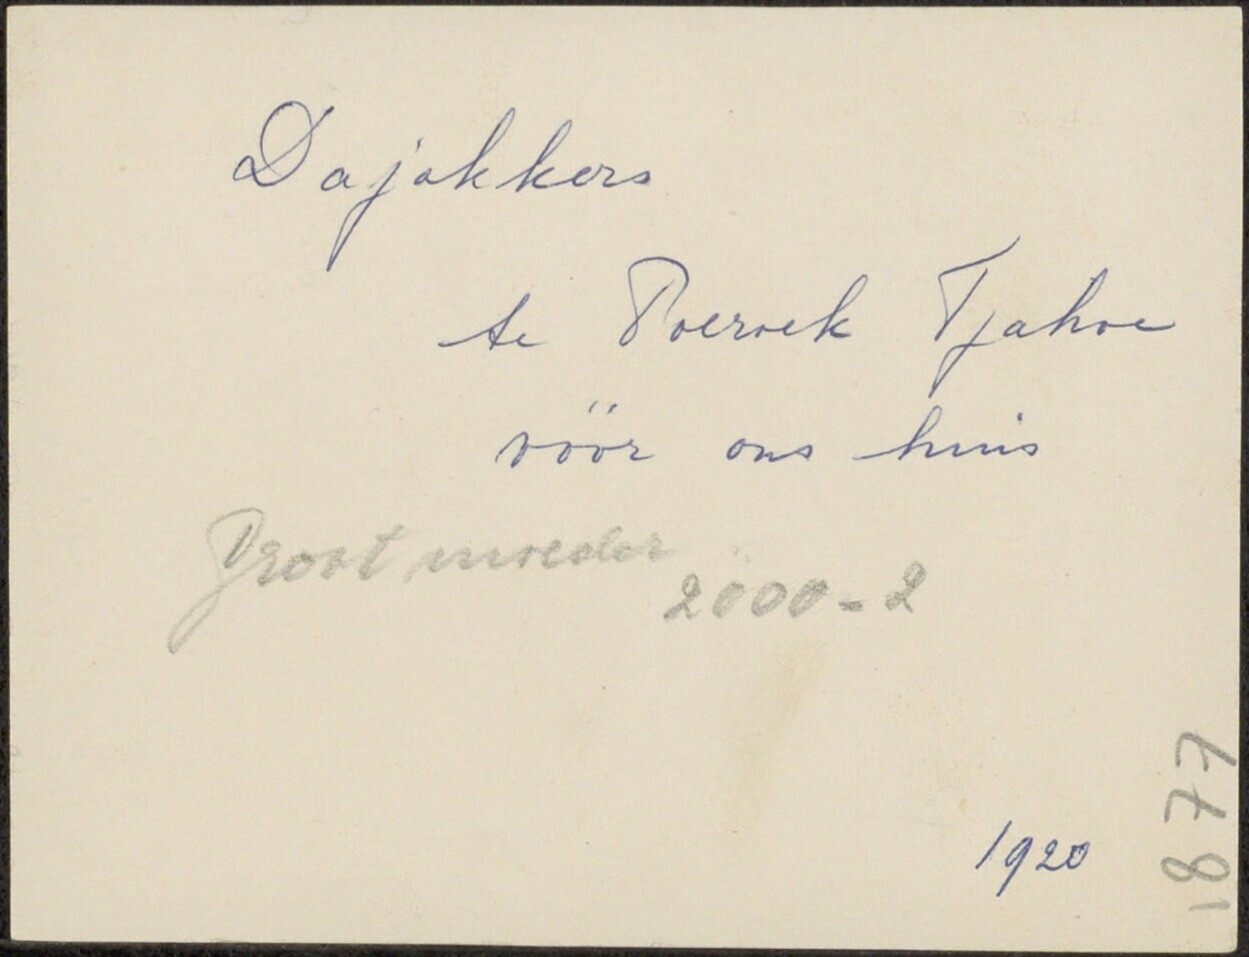 Dajakkers
te Poeroek Tjahoe
vöör ons huis
Grootmoeder
2000-2
1920
1877